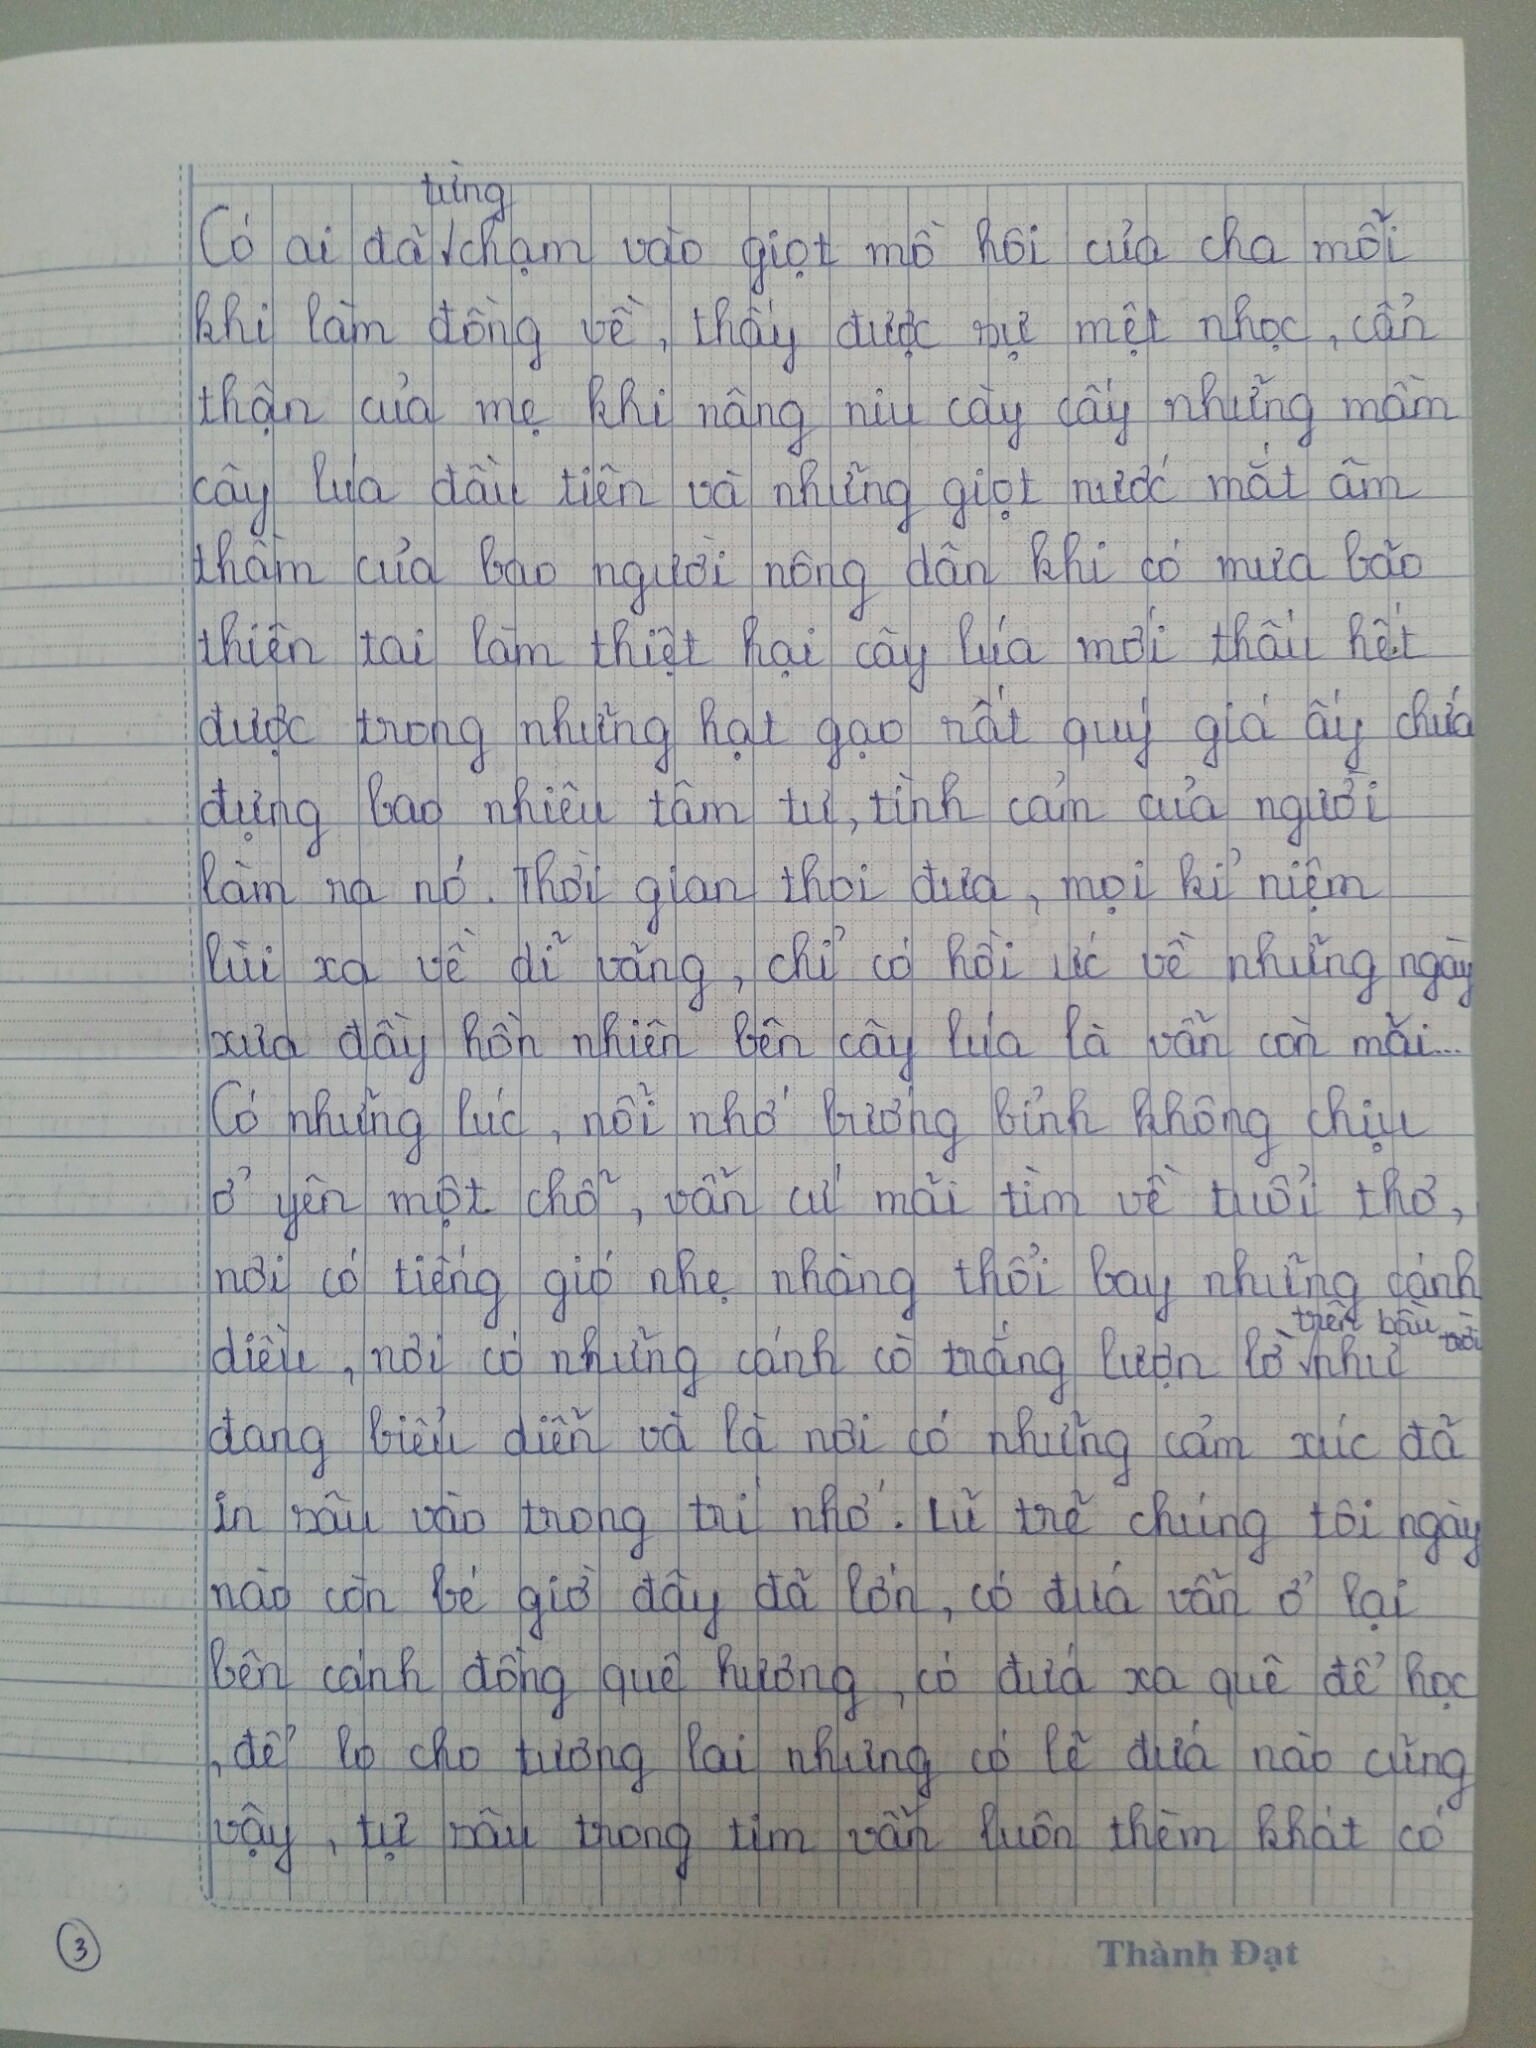 từng
Có ai đã √chạm vào giọt mồ hôi của cha mỗi
khi làm đồng về, thấy được sự mệt nhọc, cẩn
thận của mẹ khi nâng niu cày cấy những mầm
cây lúa đầu tiên và những giọt nước mắt âm
thầm của bao người nông dân khi có mưa bão
thiên tai làm thiệt hại cây lúa mới thấu hết
được trong những hạt gạo rất quý giá ấy chứa
đựng bao nhiêu tâm tư, tình cảm của người
làm ra nó. Thời gian thoi đưa, mọi kỉ niệm
lùi xa về dĩ vãng, chỉ có hồi ức về những ngày
xưa đầy hồn nhiên bên cây lúa là vẫn còn mãi...
Có những lúc, nỗi nhớ bướng bỉnh không chịu
ở yên một chỗ, vẫn cứ mãi tìm về tuổi thơ,
nơi có tiếng gió nhẹ nhàng thổi bay những cánh
trên bầu trời
diều, nơi có những cánh cò trắng lượn lờ √như
đang biểu diễn và là nơi có những cảm xúc đã
in sâu vào trong trí nhớ. Lũ trẻ chúng tôi ngày
nào còn bé giờ đây đã lớn, có đứa vẫn ở lại
bên cánh đồng quê hương, có đứa xa quê để học
, để lo cho tương lai nhưng có lẽ đứa nào cũng
vậy, tự sâu trong tim vẫn luôn thèm khát có
3
Thành Đạt